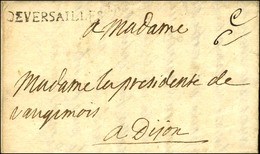 DEVERSAILLES
a Madame
Madame la presidente de
vaugimois
a Dijon